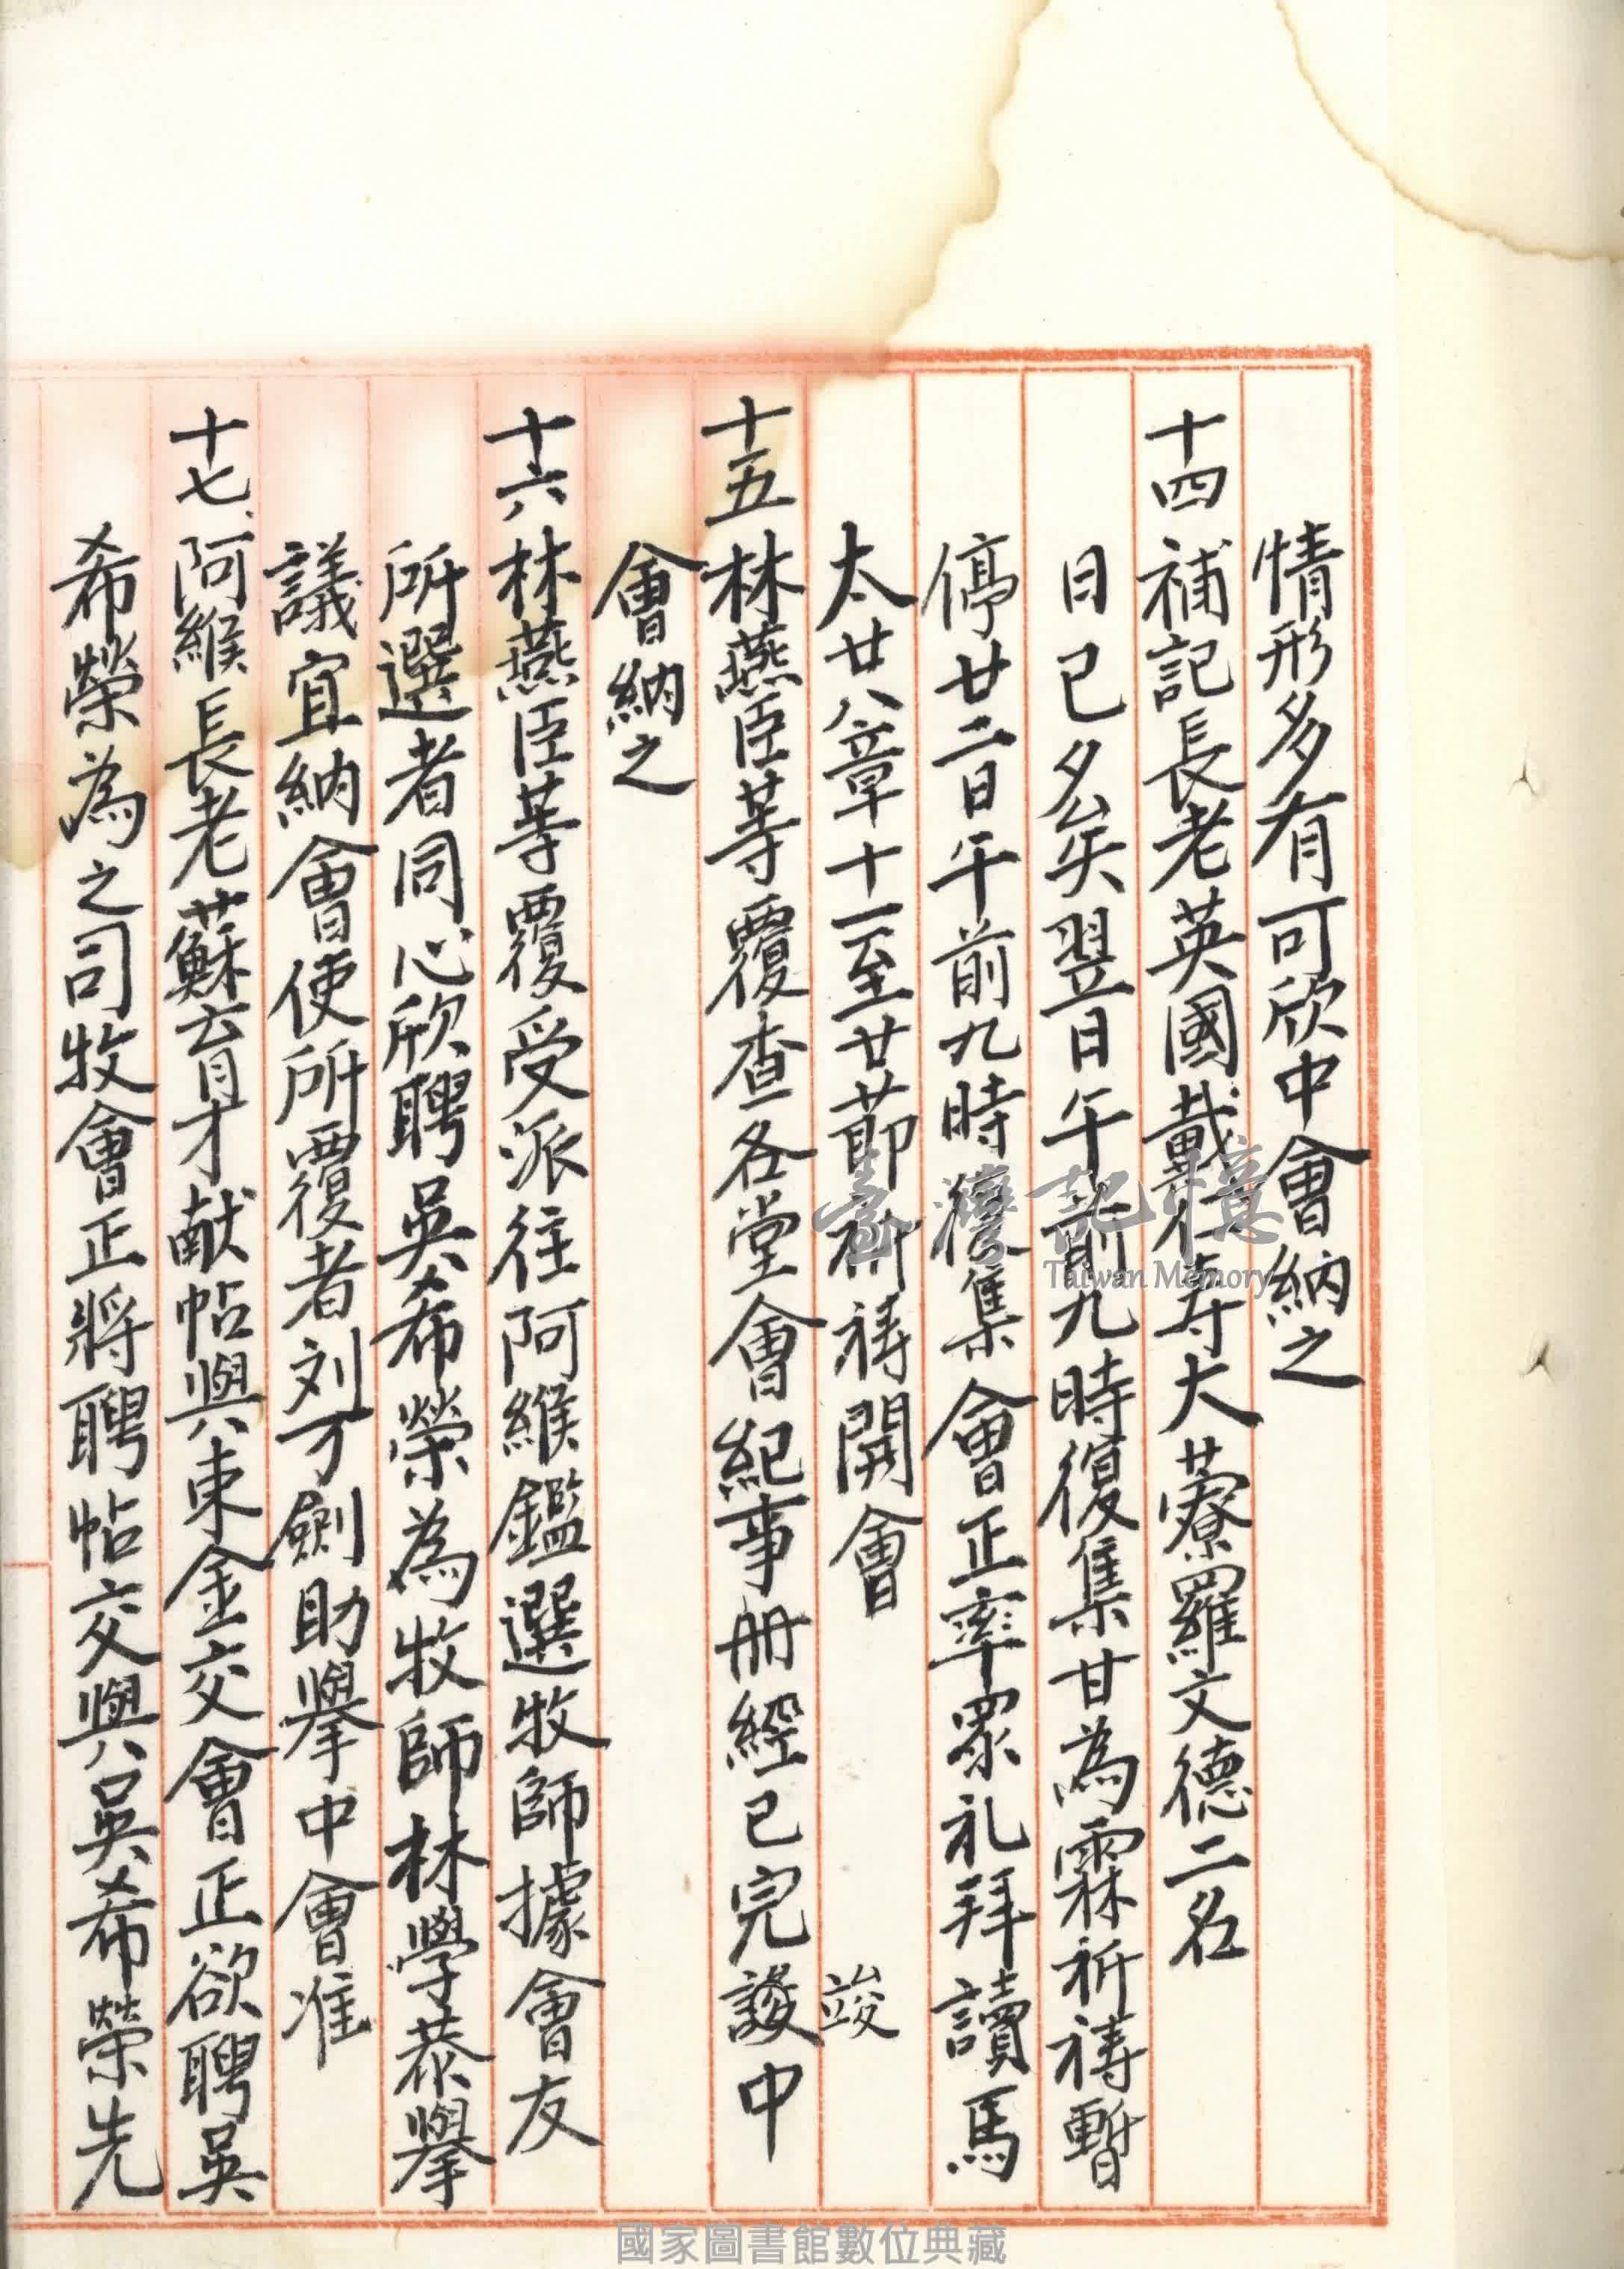 情形多有可欣中會納之
十四補記長老英國戴仁壽大藔羅文德二名
日已夕矣翌日午前九時復集甘為霖祈禱暫
停廿二日午前九時復集會正率眾礼拜讀馬
太廿八章十一至廿節祈禱開會
竣
十五林燕臣等覆查各堂會紀事册經已完誜中
會納之
十六林燕臣等覆受派往阿緱鑑選牧師據會友
所選者同心欣聘吳希榮為牧師林學恭擧
議宜納會使所覆者刘可劍助擧中會准
十七、阿緱長老蘇育才献帖與東金交會正欲聘吳
希榮為之司牧會正將聘帖交與吳希榮先
臺灣記憶
Taiwan Memory
國家圖書館數位典藏